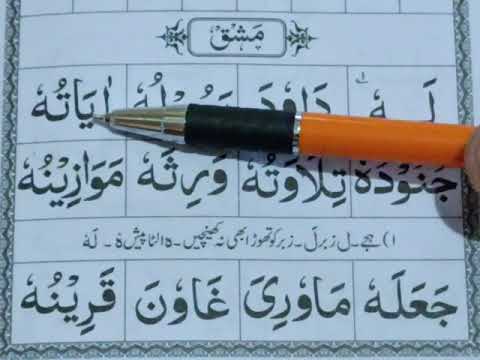 مَشق
لَهٗ دَاوٗدَ اٰيَاتُهٗ
جُنُوْدُهٗ تِلَاوَتُهٗ وَرِثَهٗ مَوَازِيْنُهٗ
۱) ہجے۔ ل زبر لَ۔ زبر کو تھوڑا بھی نہ کھینچیں۔ ہ الٹا پیش ہٗ ۔ لَہٗ
جَعَلَهٗ مَاوٗرِیَ غَاوٗنَ قَرِيْنُهٗ